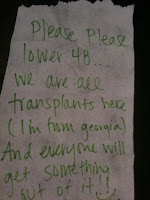 Please Please
lower 48...
we are all
transplants here
(I'm from georgia)
And everyone will
get something
out of it!!